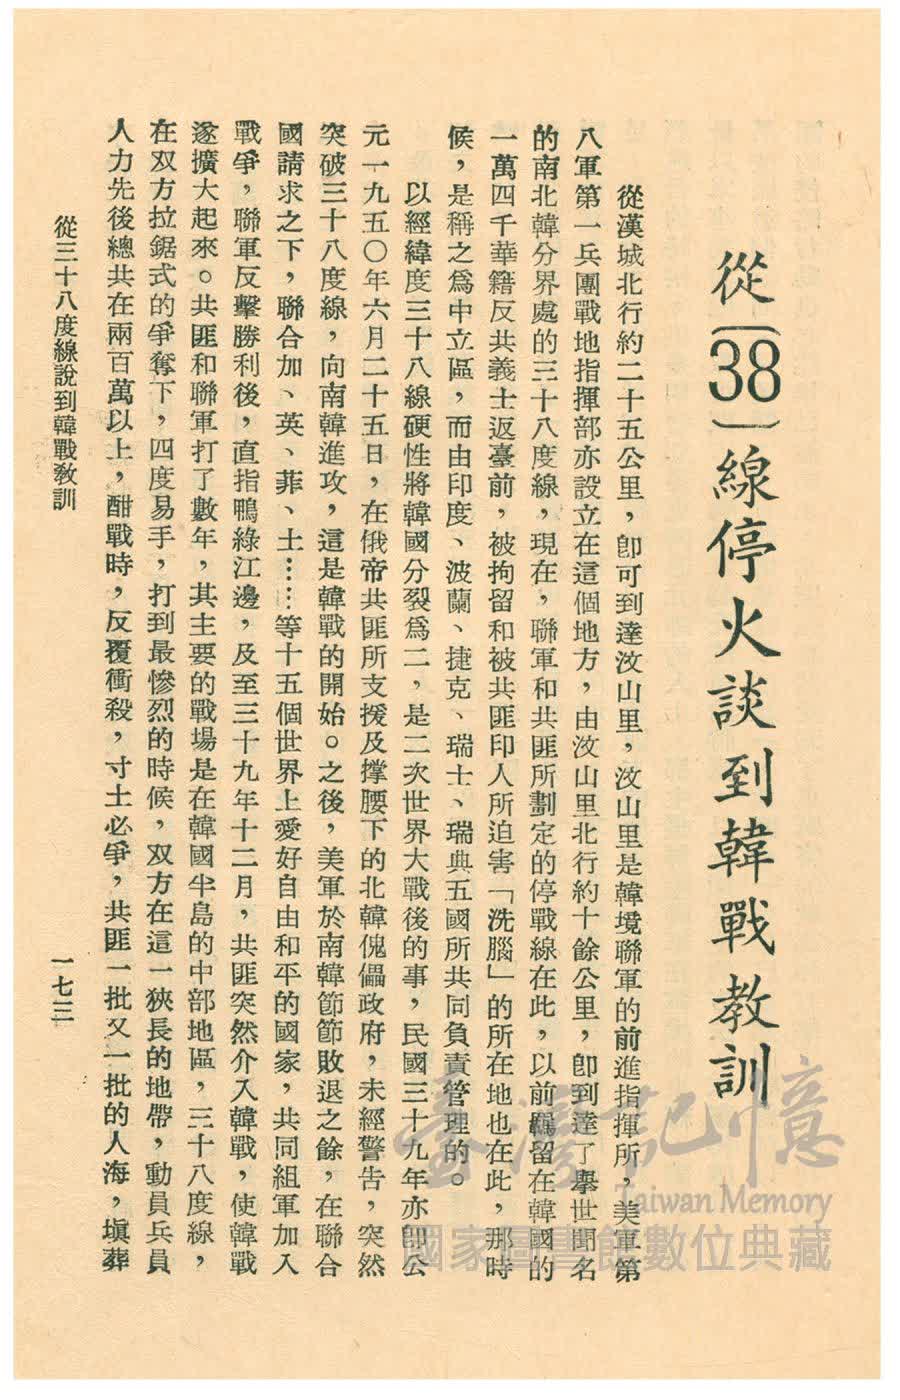 從(38)線停火談到韓戰教訓
從漢城北行約二十五公里，卽可到達汶山里，汶山里是韓境聯軍的前進指揮所，美軍第
八軍第一兵團戰地指揮部亦設立在這個地方，由汶山里北行約十餘公里，卽到達了擧世聞名
的南北韓分界處的三十八度線，現在，聯軍和共匪所劃定的停戰線在此，以前羈留在韓國的
一萬四千華籍反共義士返臺前，被拘留和被共匪印人所迫害「洗腦」的所在地也在此，那時
候，是稱之爲中立區，而由印度、波蘭、捷克、瑞士、瑞典五國所共同負責管理的。
以經緯度三十八線硬性將韓國分裂爲二，是二次世界大戰後的事，民國三十九年亦卽公
元一九五〇年六月二十五日，在俄帝共匪所支援及撑腰下的北韓傀儡政府，未經警告，突然
突破三十八度線，向南韓進攻，這是韓戰的開始。之後，美軍於南韓節節敗退之餘，在聯合
國請求之下，聯合加、英、菲、土……等十五個世界上愛好自由和平的國家，共同組軍加入
戰爭，聯軍反擊勝利後，直指鴨綠江邊，及至三十九年十二月，共匪突然介入韓戰，使韓戰
遂擴大起來。共匪和聯軍打了數年，其主要的戰場是在韓國半島的中部地區，三十八度線，
在双方拉鋸式的爭奪下，四度易手，打到最慘烈的時候，双方在這一狹長的地帶，動員兵員
人力先後總共在兩百萬以上，酣戰時，反覆衝殺，寸土必爭，共匪一批又一批的人海，塡葬
從三十八度線說到韓戰教訓
一七三
臺灣記憶
Taiwan Memory
國家圖書館數位典藏